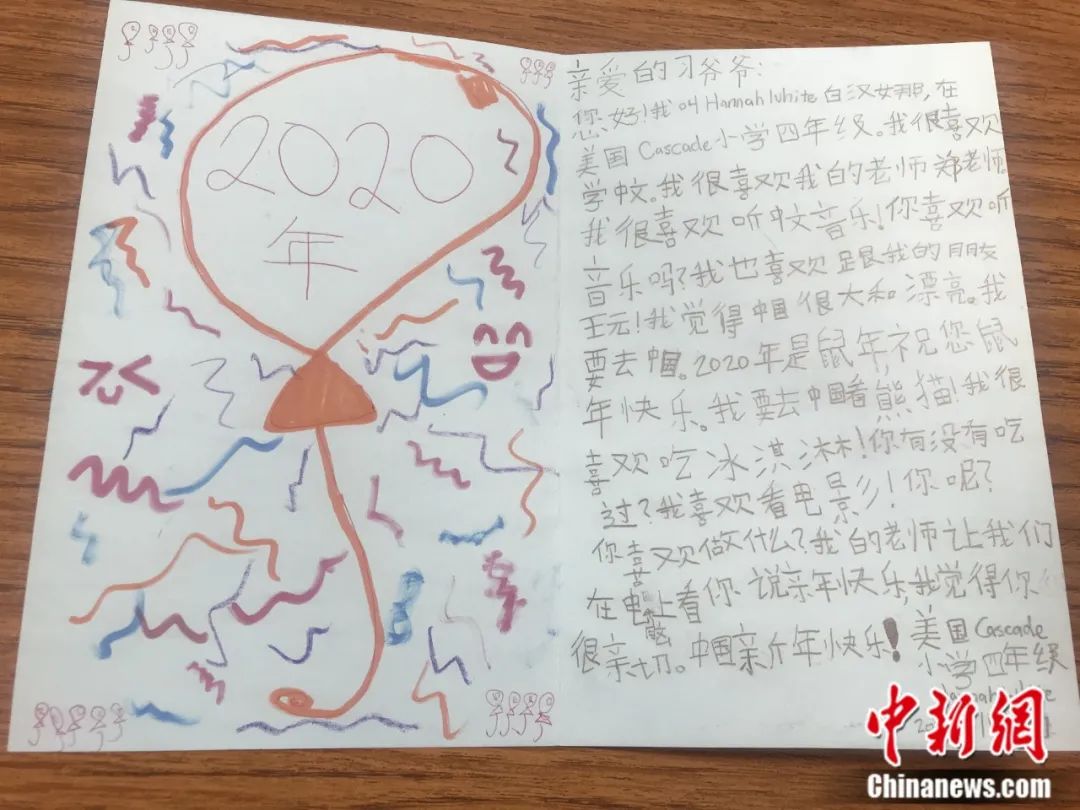 2020
年
亲爱的习爷爷:
您好!我叫Hannah White白汉娜,在
美国Cascade小学四年级。我很喜欢
学中文。我很喜欢我的老师郑老师。
我很喜欢听中文音乐!你喜欢听
音乐吗?我也喜欢跟我的朋友
玩!我觉得中国很大和漂亮。我
要去中国。2020年是鼠年,祝您鼠
年快乐。我要去中国看熊猫!我很
喜欢吃冰淇淋!你有没有吃
过?我喜欢看电影!你呢?
你喜欢做什么?我的老师让我们
在电脑上看你说亲年快乐,我觉得你
很亲切。中国亲斤年快乐!
美国Cascade
小学四年级
Hannah White
中新網
Chinanews.com